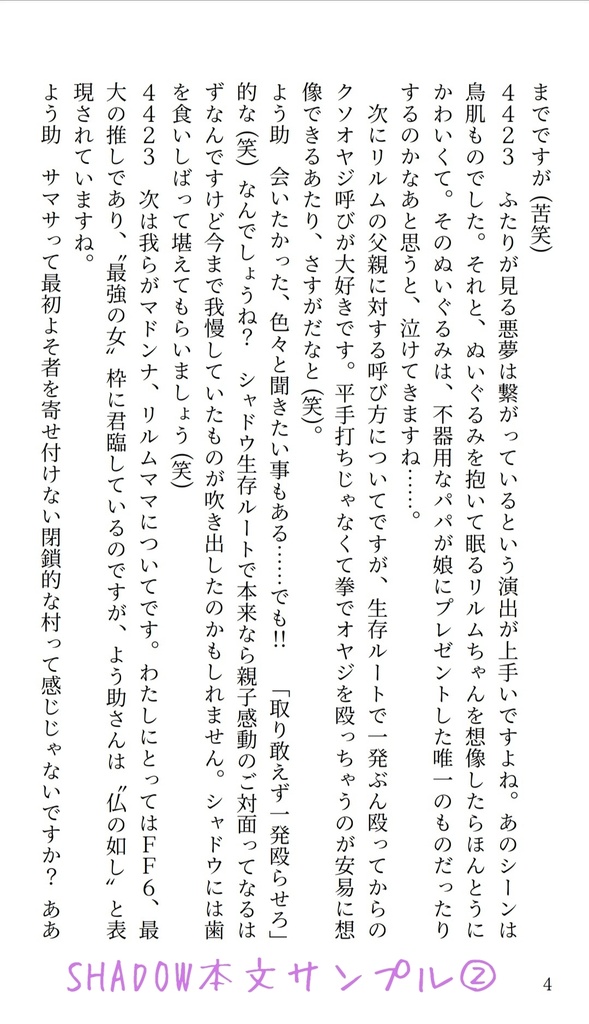 までですが(苦笑)
4423　ふたりが見る悪夢は繋がっているという演出が上手いですよね。あのシーンは
鳥肌ものでした。それと、ぬいぐるみを抱いて眠るリルムちゃんを想像したらほんとうに
かわいくて。そのぬいぐるみは、不器用なパパが娘にプレゼントした唯一のものだったり
するのかなあと思うと、泣けてきますね……。
　次にリルムの父親に対する呼び方についてですが、生存ルートで一発ぶん殴ってからの
クソオヤジ呼びが大好きです。平手打ちじゃなくて拳でオヤジを殴っちゃうのが安易に想
像できるあたり、さすがだなと(笑)。
よう助　会いたかった、色々と聞きたい事もある……でも!!　「取り敢えず一発殴らせろ」
的な(笑)　なんでしょうね？　シャドウ生存ルートで本来なら親子感動のご対面ってなるは
ずなんですけど今まで我慢していたものが吹き出したのかもしれません。シャドウには歯
を食いしばって堪えてもらいましょう(笑)
4423　次は我らがマドンナ、リルムママについてです。わたしにとってはFF6、最
大の推しであり、〝最強の女〟枠に君臨しているのですが、よう助さんは〝仏の如し〟と表
現されていますね。
よう助　サマサって最初よそ者を寄せ付けない閉鎖的な村って感じじゃないですか？　ああ
SHADOW本文サンプル②
4